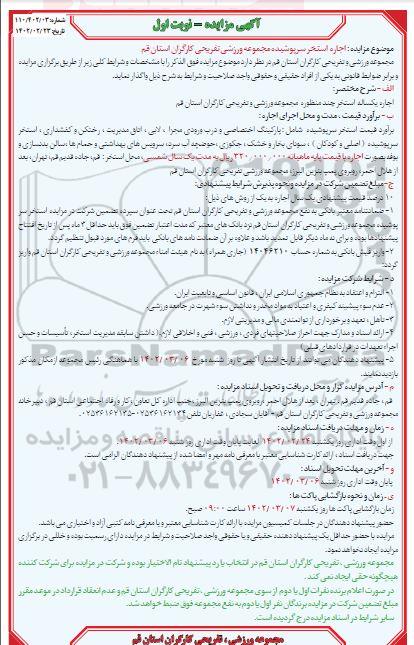 آگهی مزایده – نوبت اول
شماره: ۱۱۰/۴۰۲/۰۳
تاریخ: ۱۴۰۲/۰۲/۲۳
موضوع مزایده: اجاره استخر سرپوشیده مجموعه ورزشی تفریحی کارگران استان قم
مجموعه ورزشی و تفریحی کارگران استان قم در نظر دارد موضوع مزایده فوق الذکر را با مشخصات و شرایط کلی زیر از طریق برگزاری مزایده
و برابر ضوابط قانونی به یکی از افراد حقیقی و حقوقی واجد صلاحیت و شرایط به شرح ذیل واگذار نماید.
الف – شرح مختصر:
اجاره یکساله استخر چند منظوره مجموعه ورزشی و تفریحی کارگران استان قم
ب – برآورد قیمت ، مدت و محل اجرای اجاره:
برآورد قیمت استخر سرپوشیده شامل: پارکینگ اختصاصی و درب ورودی مجزا ، لابی ، اتاق مدیریت ، رختکن و کفشداری ، استخر
سرپوشیده (اصلی و کودکان) ، سونای بخار و خشک ، جکوزی ، حوضچه آب سرد، سرویس های بهداشتی و حمام ها، سالن بدنسازی و
بوفه بصورت اجاره با قیمت پایه ماهیانه ۳۲۰،۰۰۰،۰۰۰ ریال به مدت یک سال شمسی ، محل استخر: قم، جاده قدیم قم، تهران، بعد
از هلال احمر، روبروی پمپ بنزین البرز ، مجموعه ورزشی تفریحی کارگران استان قم
ج- مبلغ تضمین شرکت در مزایده و نحوه پذیرش شرایط پیشنهادی:
۱۰ درصد قیمت پیشنهادی یک سال اجاره به یک از روش های ذیل:
۱- ضمانتنامه معتبر بانکی به نفع مجموعه ورزشی و تفریحی کارگران استان قم تحت عنوان سپرده تضمین شرکت در مزایده استخر سر
پوشیده مجموعه ورزشی و تفریحی کارگران استان قم نزد بانک های معتبر که مدت اعتبار تضمین فوق باید حداقل ۳ ماه پس از تاریخ افتتاح
پیشنهادها بوده و برای سه ماه دیگر قابل تمدید باشد و علاوه بر آن ضمانت نامه های بانکی باید فرم های مورد قبول تنظیم گردد.
۲- واریز فیش بانکی به شماره حساب ۱۴۰۴۶۲۱۰ (جاری همراه) به نام هیئت امناء مجموعه ورزشی و تفریحی کارگران استان قم واریز
گردد.
د – شرایط شرکت مزایده:
۱- التزام و اعتقاد به نظام جمهوری اسلامی ایران ، قانون اساسی و تابعیت ایران.
۲- عدم سوء پیشینه کیفری و اعتیاد به مواد مخدر و نداشتن سوء شهرت در جامعه ورزشی.
۳- تاهل ، تعهد و برخورداری از توانمندی مالی و مدیریتی لازم.
۴- ارائه اسناد و مدارک جهت احراز صلاحیتهای فردی ، ورزشی ، فنی و اخلاقی لازم ( داشتن سابقه مدیریت استخر، تأسیسات و حسن
اجراء تعهدات در قراردادهای قبلی)
۵- پیشنهاد دهندگان می توانند از تاریخ انتشار آگهی تا روز شنبه مورخ ۱۴۰۲/۰۳/۰۶ با هماهنگی رئیس مجموعه از مکان مذکور
بازدید نمایند.
م – آدرس مزایده گزار و محل دریافت و تحویل اسناد مزایده:
قم، جاده قدیم قم – تهران ، بعد از هلال احمر ، روبروی پمپ بنزین البرز ، جنب اداره کل تعاون و کار و رفاه اجتماعی استان قم ، دبیرخانه
مجموعه ورزشی و تفریحی کارگران استان قم – آقایان سجادی ، غفاریان
ز – زمان و مهلت دریافت اسناد مزایده:
از اول وقت اداری روز یکشنبه ۱۴۰۲/۰۲/۲۴ لغایت پایان وقت اداری روز شنبه ۱۴۰۲/۰۳/۰۶
جهت دریافت اسناد ، ارائه کارت شناسایی معتبر یا معرفی نامه مهر و امضا شده از پیشنهاد دهندگان الزامی است.
و – آخرین مهلت تحویل اسناد:
پایان وقت اداری روز شنبه ۱۴۰۲/۰۳/۰۶
ی – زمان و نحوه بازگشایی پاکت ها:
زمان بازگشایی پاکت ها روز یکشنبه ۱۴۰۲/۰۳/۰۷ ساعت ۰۹:۰۰ صبح.
حضور پیشنهاد دهندگان در جلسات کمیسیون مزایده با ارائه کارت شناسایی معتبر و یا معرفی نامه کتبی آزاد و اختیاری می باشد.
مزایده با حضور حداقل یک پیشنهاد دهنده حقیقی و یا حقوقی واجد صلاحیت و شرایط در مزایده دارای رسمیت بوده و خللی در برگزاری
مزایده ایجاد نخواهد نمود.
مجموعه ورزشی ، تفریحی کارگران استان قم در انتخاب یا رد پیشنهاد تام الاختیار بوده و شرکت در مزایده برای شرکت کننده
هیچگونه حقی ایجاد نمی کند .
در صورت اعلام برنده نفرات اول یا دوم از سوی مجموعه ورزشی ، تفریحی کارگران استان قم و عدم انعقاد قرارداد در موعد مقرر
مبلغ تضمین شرکت در مزایده برندگان نفر اول یا دوم به نفع مجموعه فوق ضبط خواهد شد.
سایر شرایط در اسناد مزایده درج گردیده است.
مجموعه ورزشی ، تفریحی کارگران استان قم
۰۲۱-۸۸۳۴۹۶۷۰